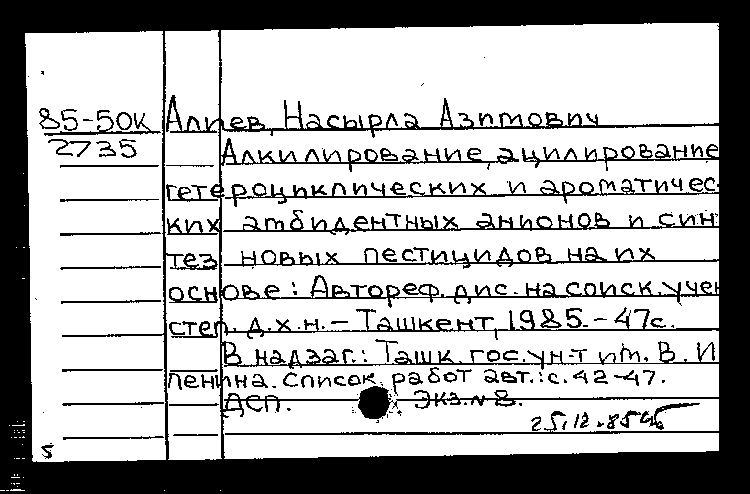 85-50к Алиев, Насырла Азимович
2735 Алкилирование, ацилирование
гетероциклических и ароматичес-
ких амбидентных анионов и син-
тез новых пестицидов на их
основе: Автореф. дис. на соиск. учен
степ. д.х.н. - Ташкент, 1985. - 47с.
В надзаг.: Ташк. гос. ун-т им. В. И
Ленина. Список работ авт.: с. 42-47.
ДСП. Экз. № 8.
25.12.85
5